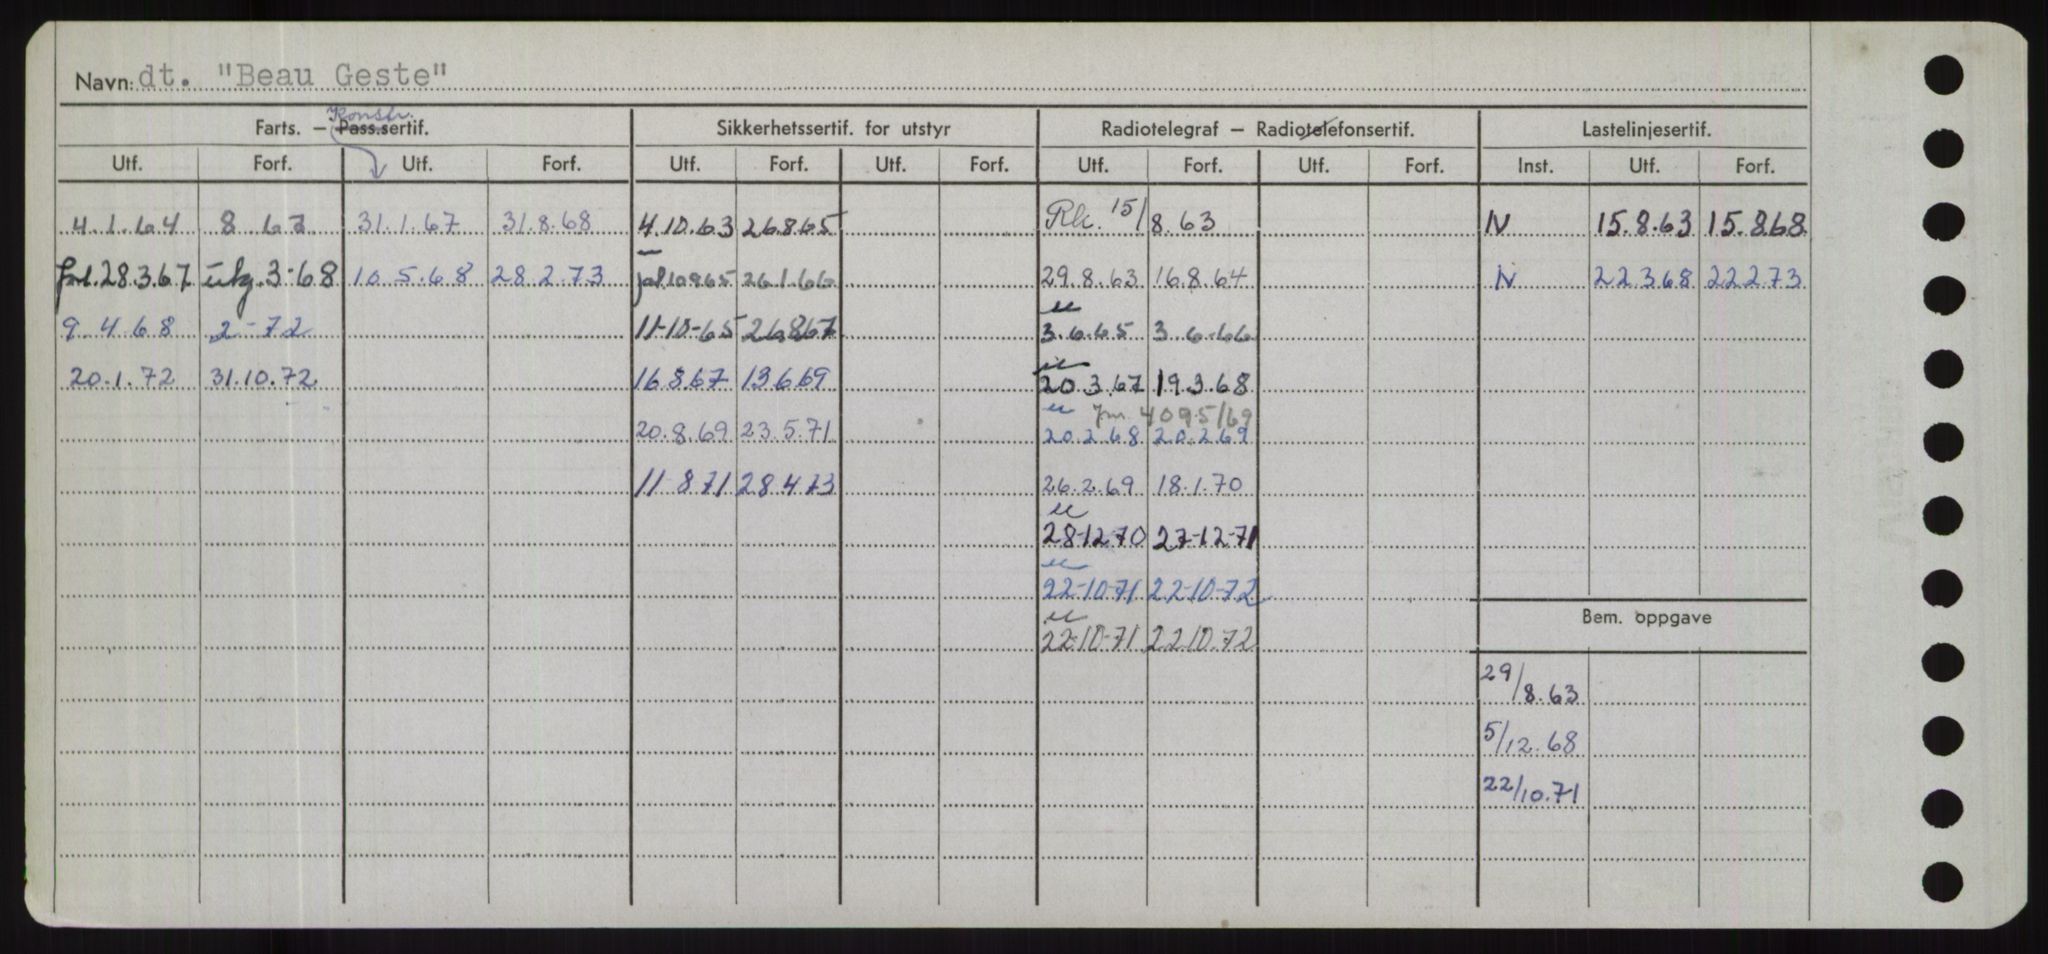 Navn: dt. "Beau Geste"
Konstr.
Farts. – Pass.sertif. Sikkerhetssertif. for utstyr Radiotelegraf – Radiotelefonsertif. Lastelinjesertif.
Utf. Forf. Utf. Forf. Utf. Forf. Utf. Forf. Utf. Forf. Utf. Forf. Inst. Utf. Forf.
4.1.64 8 67 31.1.67 31.8.68 4.10.63 26.8.65 Rk. 15/8.63 N 15.8.63 15.8.68
forl. 28.3.67 utg. 3-68 10.5.68 28.2.73 10.9.65 26.1.66 29.8.63 16.8.64 N 22.3.68 22.2.73
u
9.4.68 2-72 11-10-65 26.8.67 3.6.65 3.6.66
u
20.1.72 31.10.72 16.8.67 13.6.69 20.3.67 19.3.68
u 4095/69
20.8.69 23.5.71 20.2.68 20.2.69
11-8.71 28.4.73 26.2.69 18.1.70
u
28-12-70 27-12-71
u
22-10-71 22-10-72
u
22-10-71 22.10.72
Bem. oppgave
29/8.63
5/12.68
22/10.71